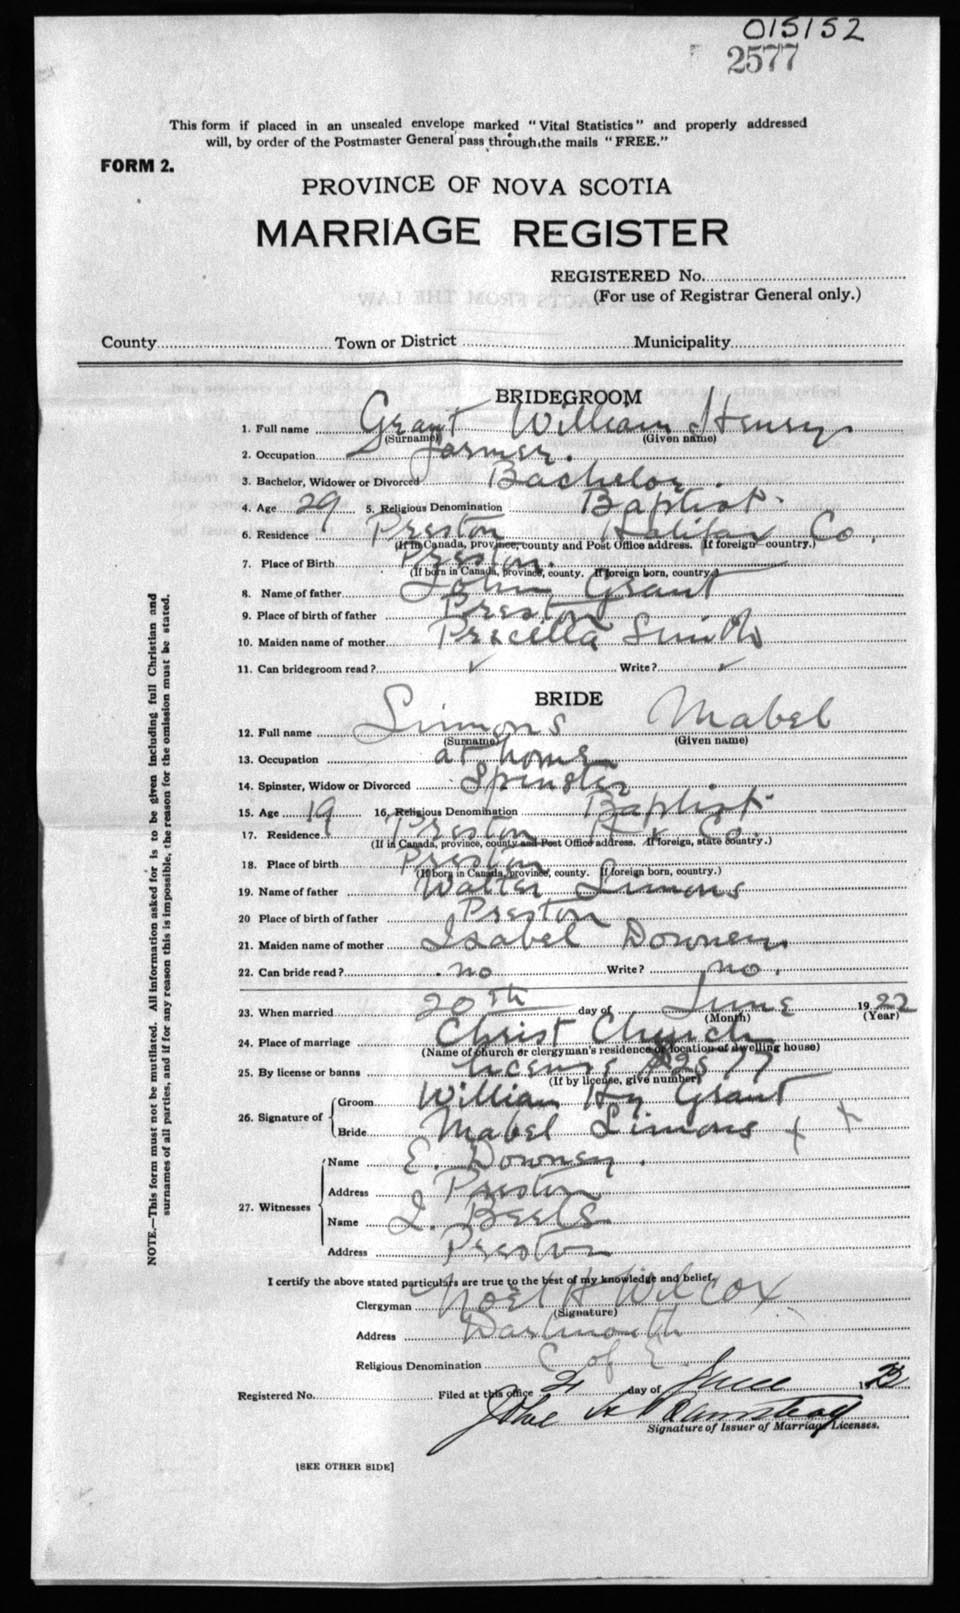 015152
2577
This form if placed in an unsealed envelope marked "Vital Statistics" and properly addressed
will, by order of the Postmaster General pass through the mails "FREE."
FORM 2.
PROVINCE OF NOVA SCOTIA
MARRIAGE REGISTER
REGISTERED No.
(For use of Registrar General only.)
County Town or District Municipality
BRIDEGROOM
1. Full name Grant William Henry
(Surname) (Given name)
2. Occupation farmer.
3. Bachelor, Widower or Divorced Bachelor.
4. Age 29 5. Religious Denomination Baptist.
6. Residence Preston Halifax Co.
(If in Canada, province, county and Post Office address. If foreign country.)
7. Place of Birth Preston.
(If born in Canada, province, county. If foreign born, country.)
8. Name of father John Grant
9. Place of birth of father Preston
10. Maiden name of mother Precella Smith
11. Can bridegroom read? ✓ Write? ✓
BRIDE
12. Full name Simons Mabel
(Surname) (Given name)
13. Occupation at home
14. Spinster, Widow or Divorced Spinster
15. Age 19 16. Religious Denomination Baptist.
17. Residence Preston Hx Co.
(If in Canada, province, county and Post Office address. If foreign, state country.)
18. Place of birth Preston
(If born in Canada, province, county. If foreign born, country.)
19. Name of father Walter Simons
20 Place of birth of father Preston
21. Maiden name of mother Isabel Downey
22. Can bride read? no Write? no.
23. When married 20th day of June 1922
(Month) (Year)
24. Place of marriage Christ Church
(Name of church or clergyman's residence or location of dwelling house)
25. By license or banns license 2577
(If by license, give number)
26. Signature of Groom William Hy Grant
Bride Mabel Simons + +
27. Witnesses
Name E. Downey.
Address Preston
Name I. Beels
Address Preston
I certify the above stated particulars are true to the best of my knowledge and belief.
Clergyman Noel H Wilcox
(Signature)
Address Dartmouth
Religious Denomination C of E.
Registered No. Filed at this office day of June 19
John
Signature of Issuer of Marriage Licenses.
[SEE OTHER SIDE]
NOTE.—This form must not be mutilated. All information asked for is to be given including full Christian and
surnames of all parties, and if for any reason this is impossible, the reason for the omission must be stated.